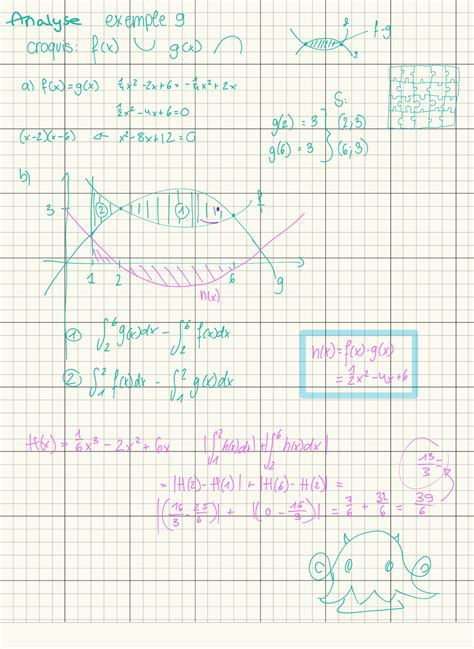 Analyse exemple 9
croquis: f(x) ∪ g(x) ∩
f
f-g
a) f(x)=g(x) ¼x²-2x+6=-¼x²+2x
½x²-4x+6=0
(x-2)(x-6) ⇐ x²-8x+12=0
S:
g(2)=3 } (2;3)
g(6)=3 } (6;3)
b)
3
② ① f
1 2 6 g
h(x)
① ∫₂⁶ g(x)dx - ∫₂⁶ f(x)dx
② ∫₁² f(x)dx - ∫₁² g(x)dx
h(x)=f(x)-g(x)
=½x²-4x+6
H(x)=1/6x³-2x²+6x |∫₁² h(x)dx|+|∫₂⁶ h(x)dx|
13/3=
=|H(2)-H(1)|+|H(6)-H(2)=
|(16/3-25/6)|+|(0-16/3)|=7/6+32/6=39/6